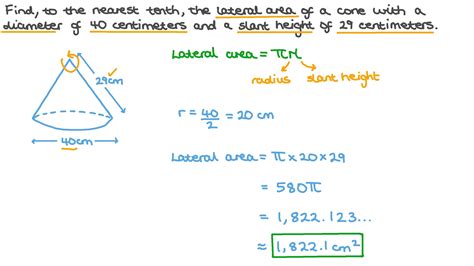 Find, to the nearest tenth, the lateral area of a cone with a
diameter of 40 centimeters and a slant height of 29 centimeters.
Lateral area = πrl
radius slant height
29cm
40cm
r = 40/2 = 20 cm
Lateral area = π×20×29
= 580π
= 1,822.123...
≈ 1,822.1 cm²